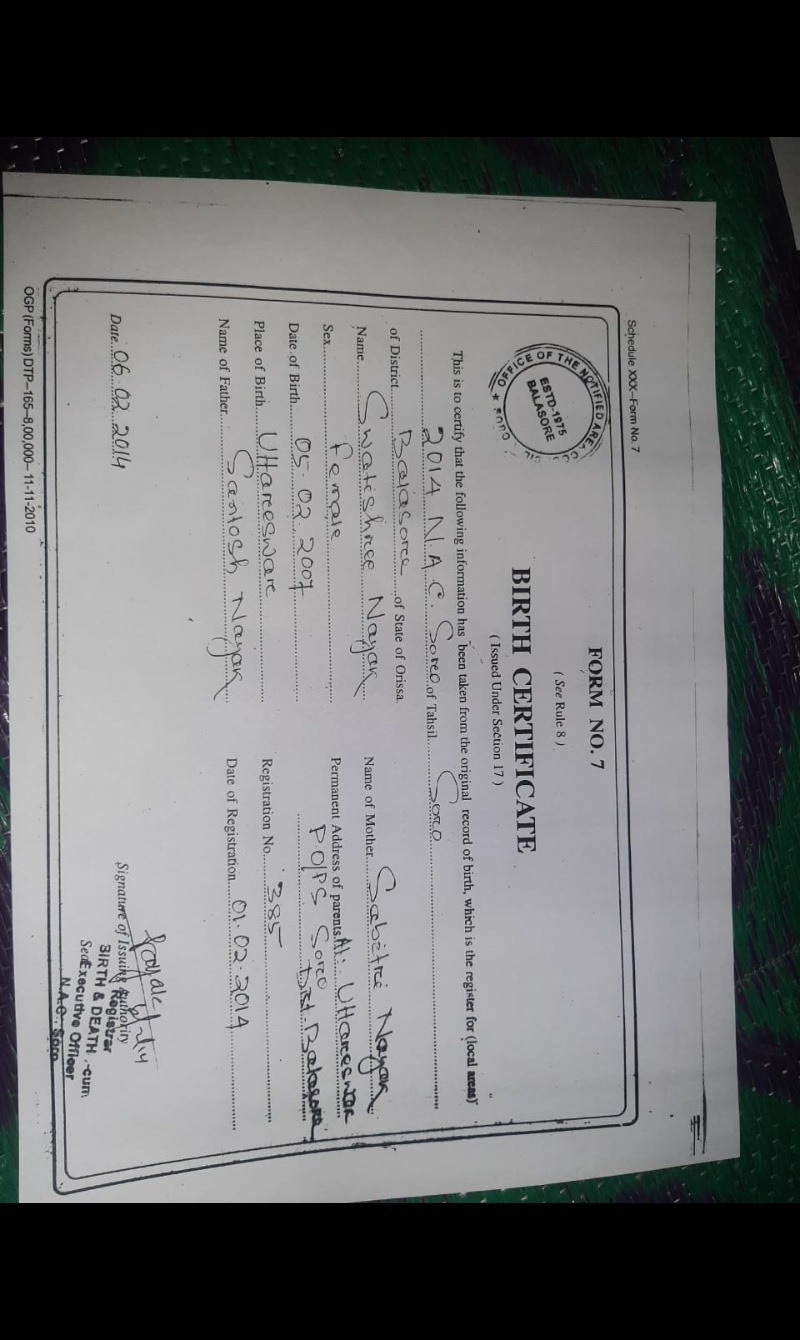 Schedule XXX-Form No. 7
FORM NO. 7
( See Rule 8 )
BIRTH CERTIFICATE
( Issued Under Section 17 )
OFFICE OF THE NOTIFIED AREA
ESTD.-1975
BALASORE
★ SORO
This is to certify that the following information has been taken from the original record of birth, which is the register for (local areas)
2014 N.A.C. Soro of Tahsil Soro
of District Balasore of State of Orissa.
Name Swatishree Nayak
Sex Female
Date of Birth 05.02.2007
Place of Birth Uttareswar
Name of Father Santosh Nayak
Name of Mother Sabitri Nayak
Permanent Address of parents At: Uttareswar
P.O/PS Soro
Dist. Balasore
Registration No. 385
Date of Registration 01.02.2014
Date 06.02.2014
Signature of Issuing Authority
Registrar
BIRTH & DEATH -cum
Executive Officer
N.A.C. Soro
OGP (Forms) DTP-165-8,00,000- 11-11-2010